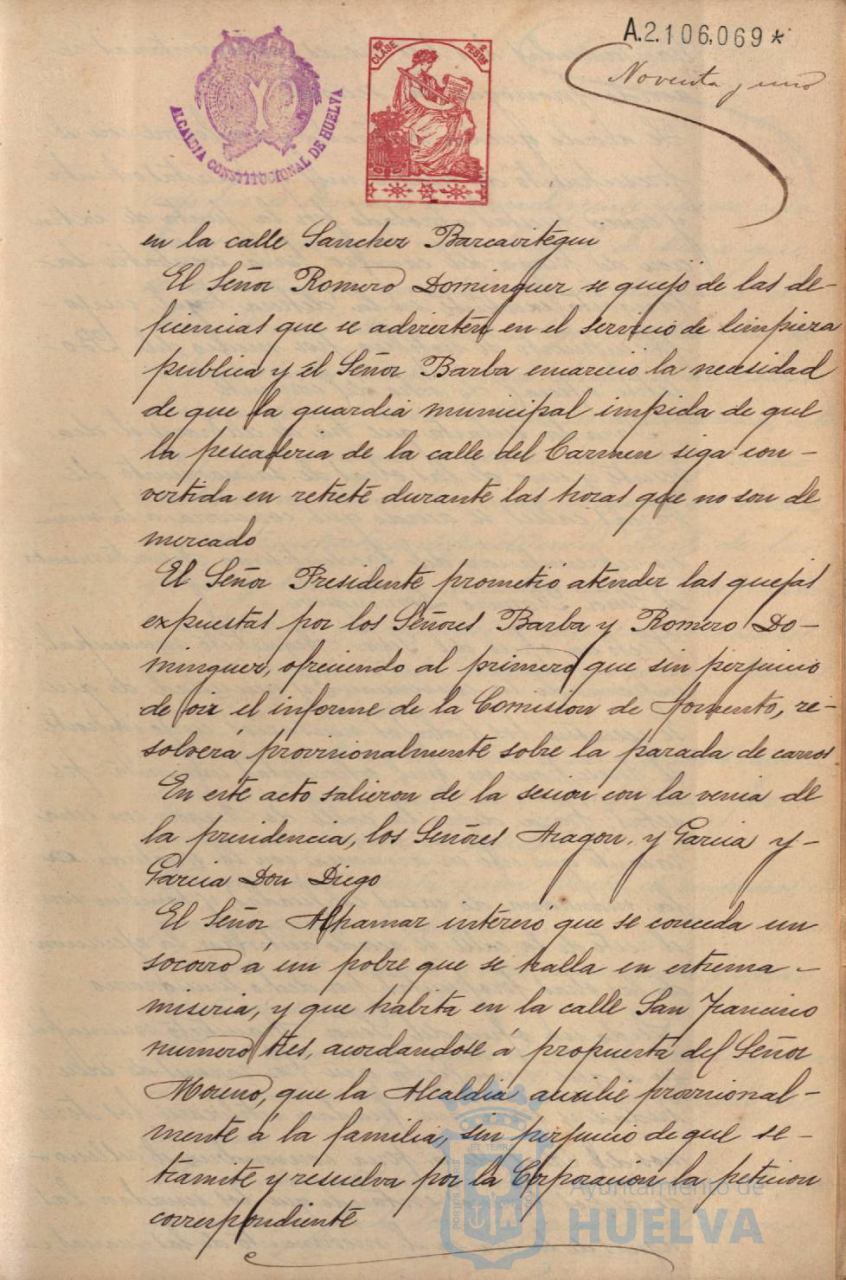 A.2.106,069*
Noventa y uno
10ª CLASE 2 PESETAS
ALCALDIA CONSTITUCIONAL DE HUELVA
en la calle Sanchez Barcaiztegui
El Señor Romero Dominguez se quejó de las de-
ficiencias que se advierten en el servicio de limpieza
publica y él Señor Barba encareció la necesidad
de que la guardia municipal impida de que
la pescaderia de la calle del Carmen siga con-
vertida en retrete durante las horas que no son de
mercado
El Señor Presidente prometió atender las quejas
expuestas por los Señores Barba y Romero Do-
minguez, ofreciendo al primero que sin perjuicio
de oir el informe de la Comision de Fomento, re-
solverá provisionalmente sobre la parada de carros
En este acto salieron de la sesion con la venia de
la presidencia, los Señores Aragon, y Garcia y-
Garcia Don Diego
El Señor Alpamar interesó que se conceda un
socorro á un pobre que se halla en estrema-
miseria, y que habita en la calle San Francisco
numero tres, acordandose á propuesta del Señor
Moreno, que la Alcaldia auxilie provisional-
mente á la familia, sin perjuicio de que se-
tramite y resuelva por la Corporacion la peticion
correspondiente
Ayuntamiento de
HUELVA